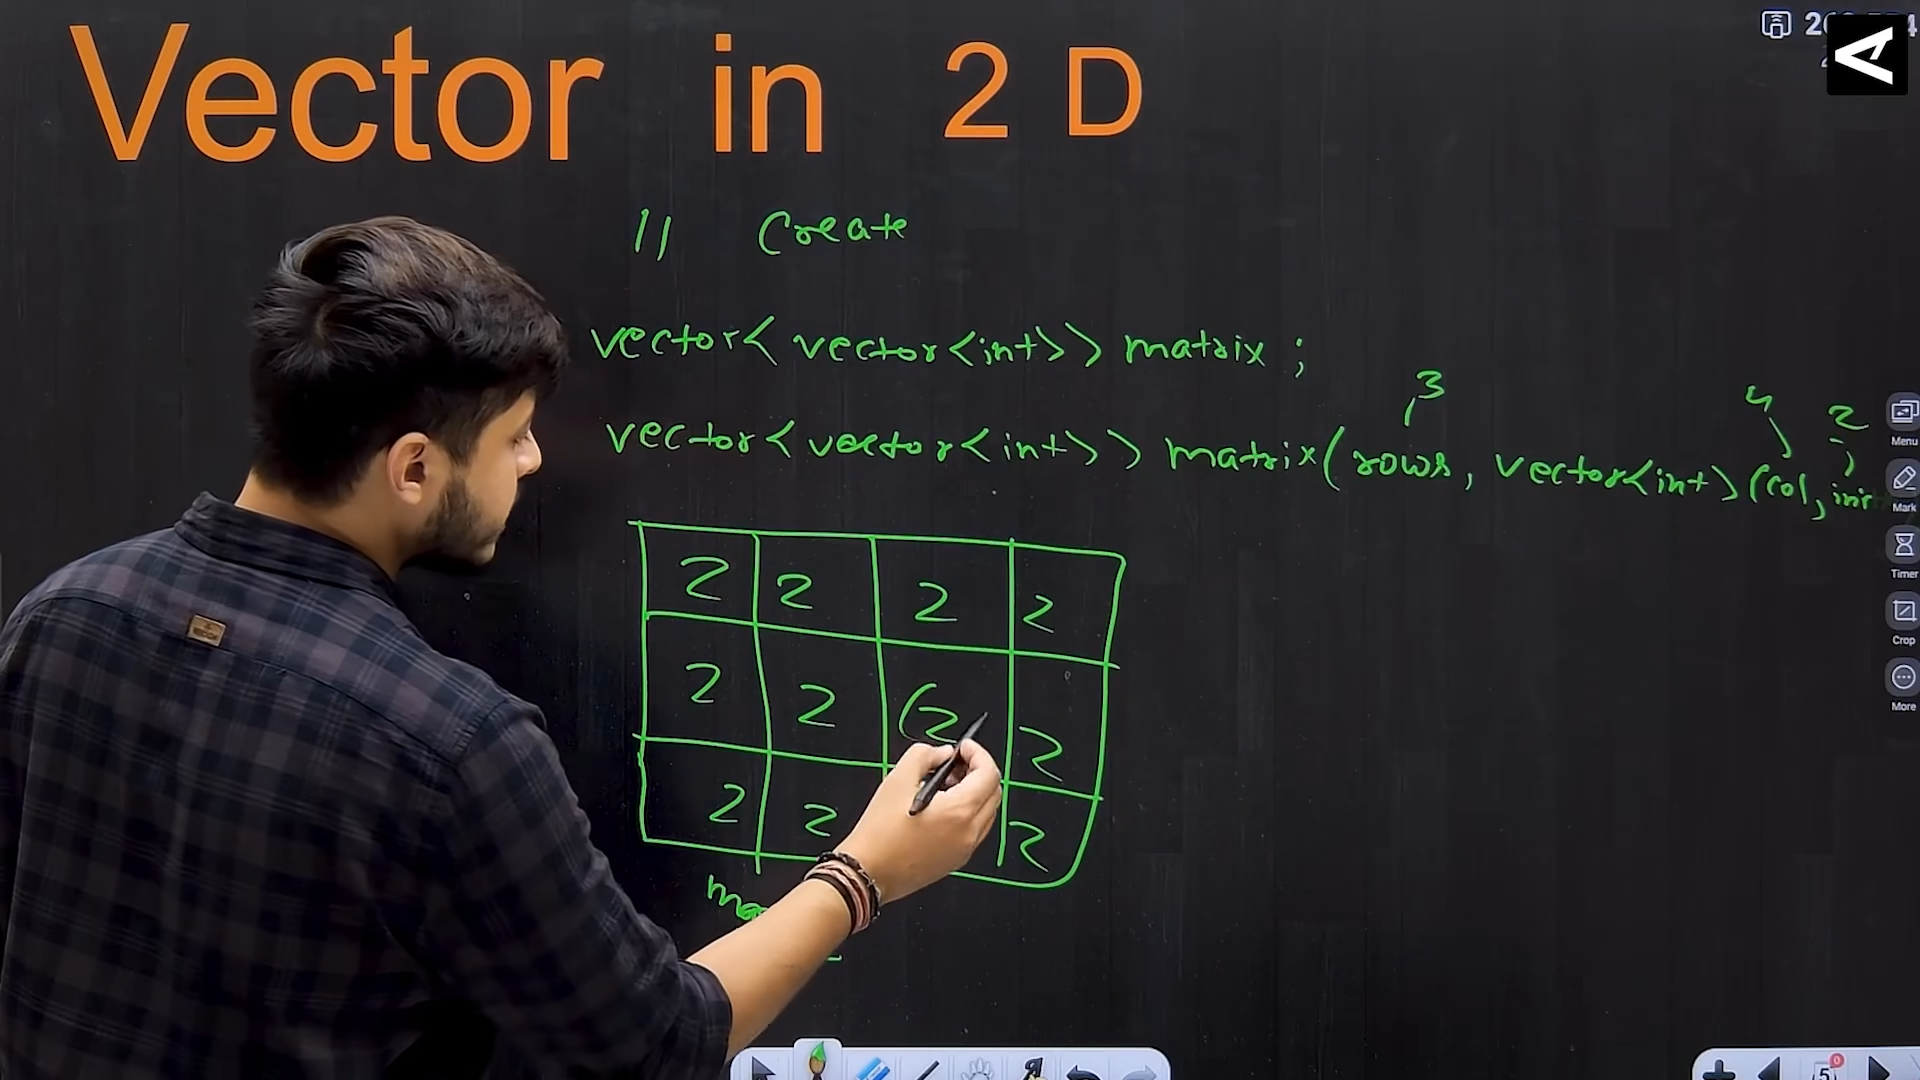 Vector in 2 D
// Create
vector< vector<int>> matrix ;
3
4 2
vector<vector<int>> matrix(rows, vector<int>(col,
2 2 2 2
2 2 2 2
2 2 2
Menu
Mark
Timer
Crop
More
5
0